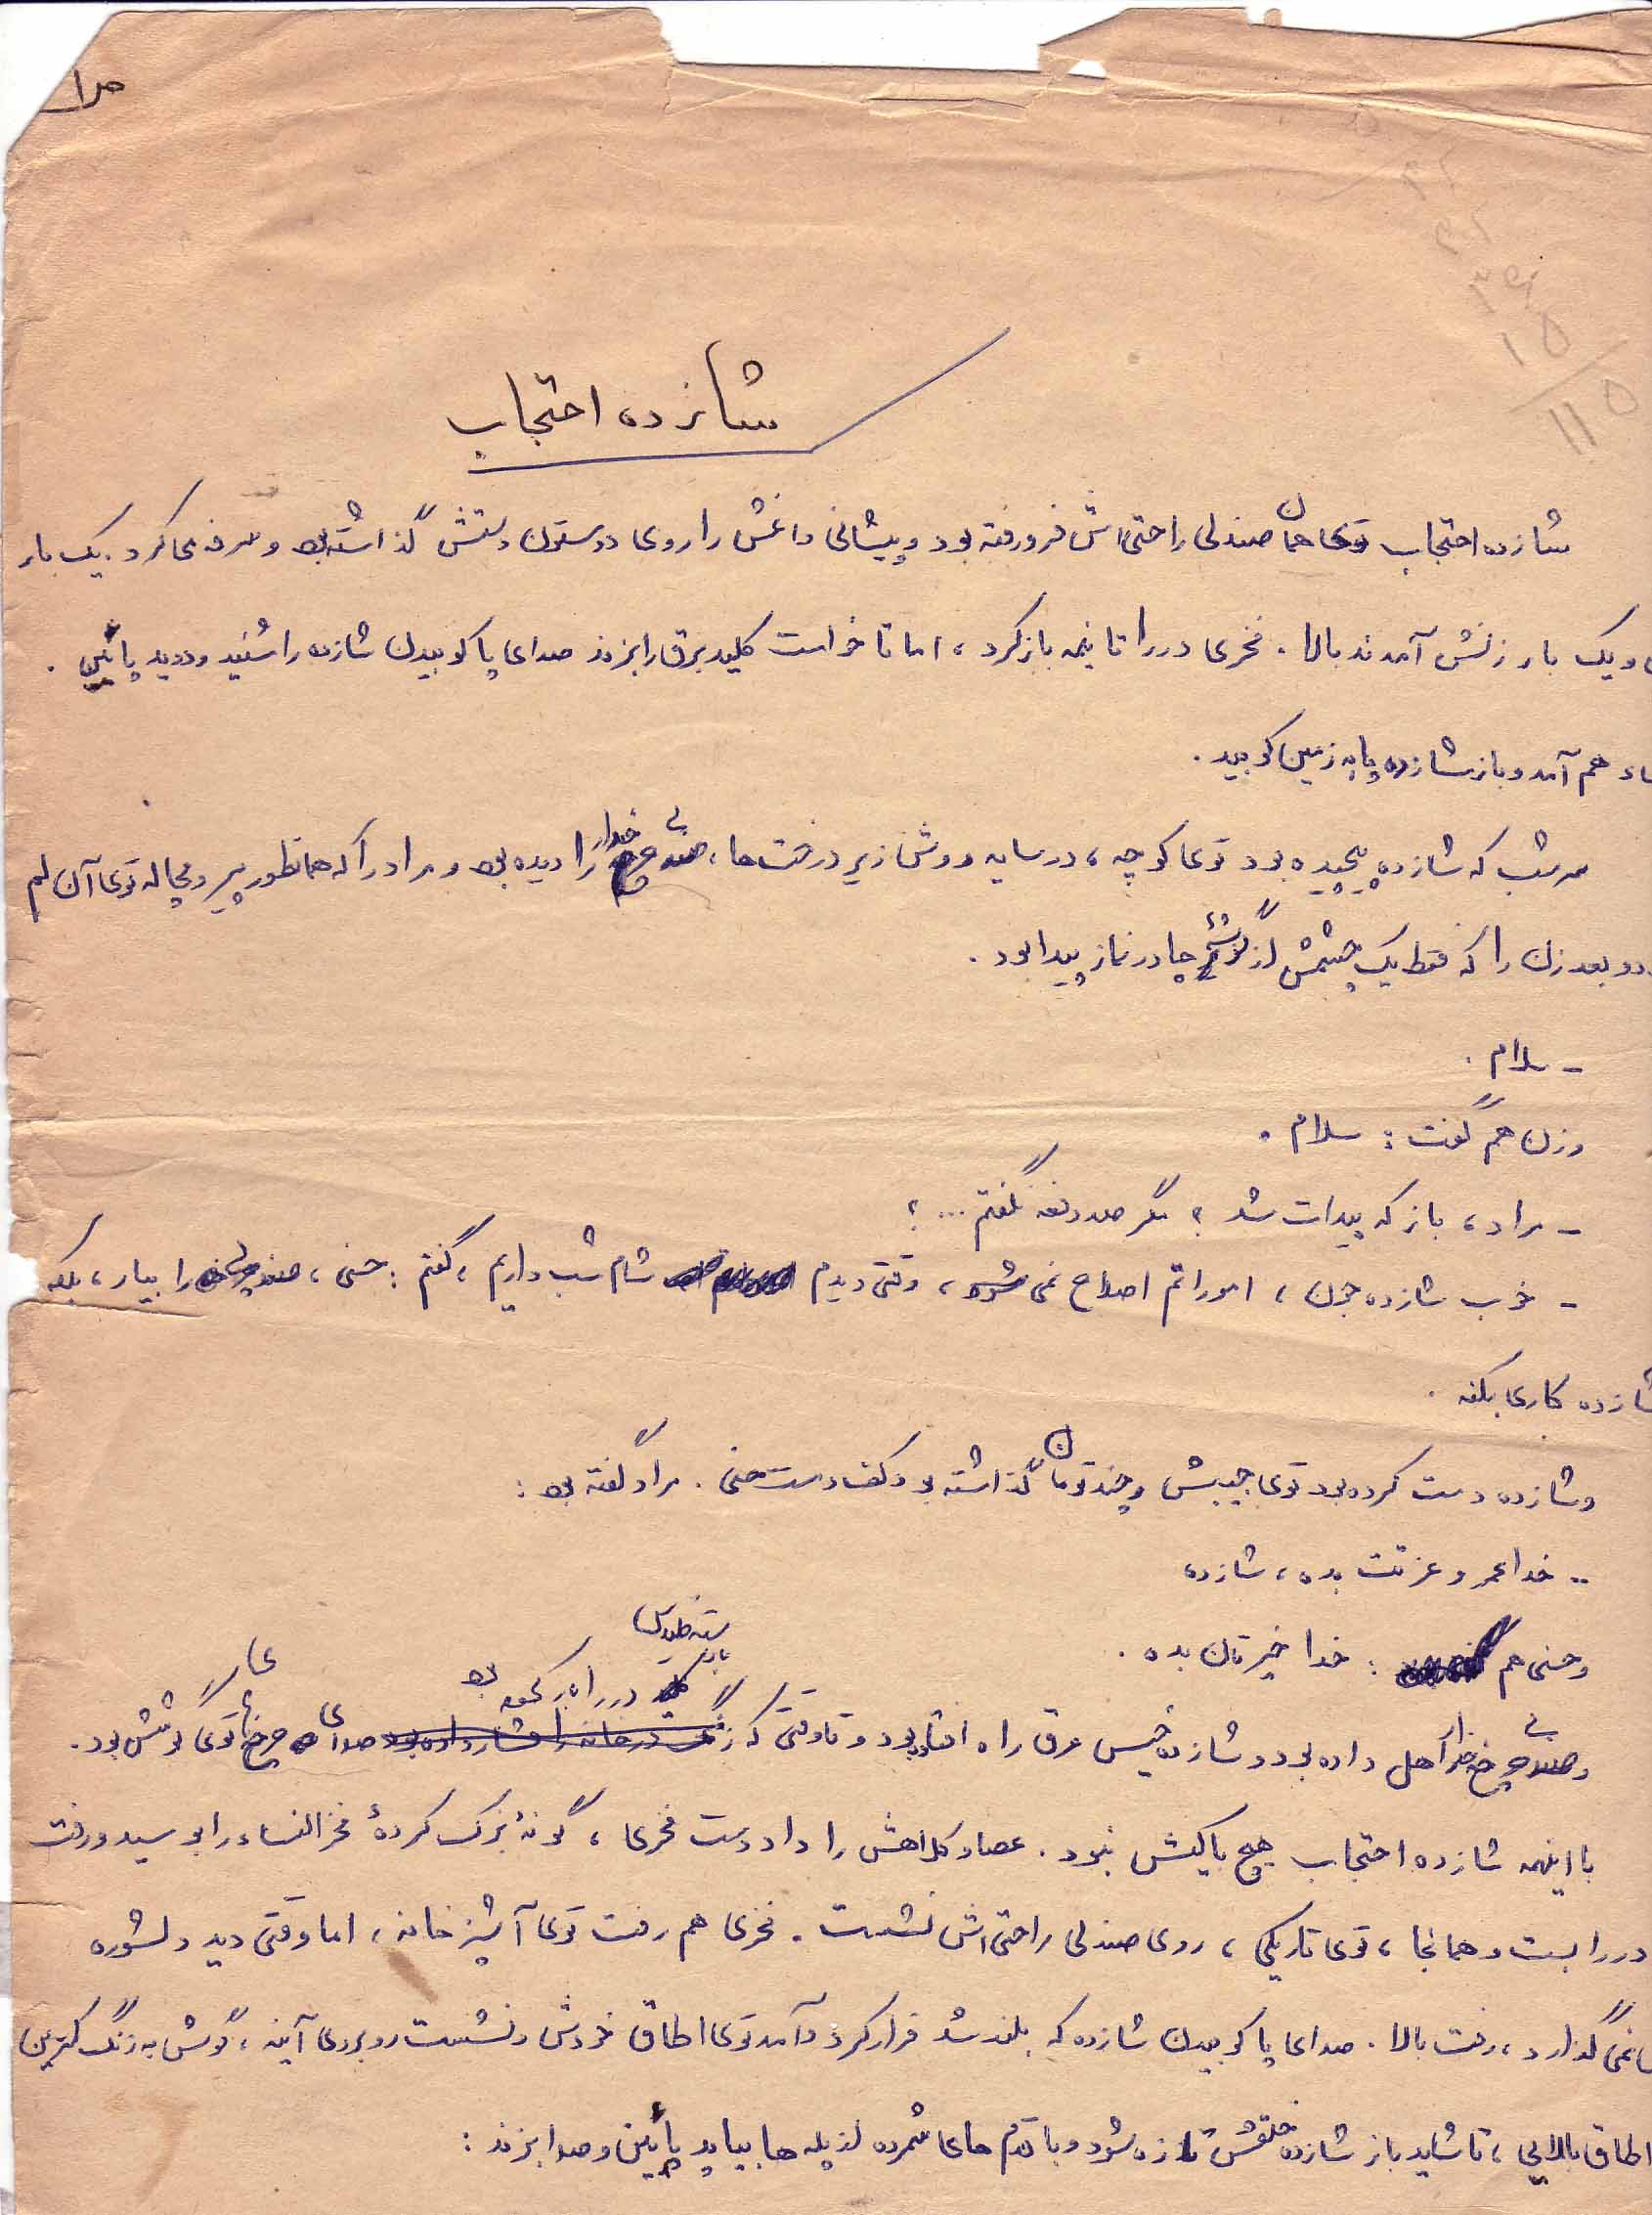 ص ۱
۳۶
۱۵
۱۱۵
شازده احتجاب
شازده احتجاب توی همان صندلی راحتی‌اش فرو رفته بود و پیشانی داغش را روی دو ستون دستش گذاشته بود و سرفه می‌کرد. یک بار
و یک بار زنش آمدند بالا. فخری در را تا نیمه باز کرد، اما تا خواست کلید برق را بزند صدای پا کوبیدن شازده را شنید و دوید پائین.
هم آمد و باز شازده پا به زمین کوبید.
سر شب که شازده پیچیده بود توی کوچه، در سایه روشن زیر درخت‌ها، صندلی چرخدار را دیده بود و مراد را که همانطور پیر و مچاله توی آن لم
بعد زن را که فقط یک چشمش از گوشهٔ چادر نماز پیدا بود.
- سلام.
و زن هم گفت: سلام.
- مراد، باز که پیدات شد؟ مگر صد دفعه نگفتم...؟
- خوب شازده جون، امورا تم اصلاح نمی‌شود، وقتی دیدم شام شب داریم، گفتم: حسنی، صندلی را بیار، بلکه
شازده کاری بکنه.
و شازده دست کرده بود توی جیبش و چند تومان گذاشته بود کف دست حسنی. مراد گفته بود:
- خدا عمر و عزتت بده، شازده
و حسنی هم : خدا خیرتان بده.
در را باز کرده بود
و صندلی چرخدار را هل داده بود و شازده خیس عرق راه افتاده بود و تا وقتی که در خانه را فشار داده بود صدای چرخ‌ها توی گوشش بود.
با اینهمه شازده احتجاب هیچ باکیش نبود. عصا و کلاهش را داد دست فخری، گونهٔ بزک کردهٔ فخرالنساء را بوسید و رفت
در را بست و همانجا، توی تاریکی، روی صندلی راحتی‌اش نشست. فخری هم رفت توی آشپزخانه، اما وقتی دید دلشوره
نمی‌گذارد، رفت بالا. صدای پا کوبیدن شازده که بلند شد فرار کرد و آمد توی اطاق خودش و نشست روبروی آینه، گوش به زنگ کمترین
اطاق بالایی، تا شاید باز شازده خلقش تازه شود و با قدم‌های شمرده از پله‌ها بیاید پائین و صدا بزند: